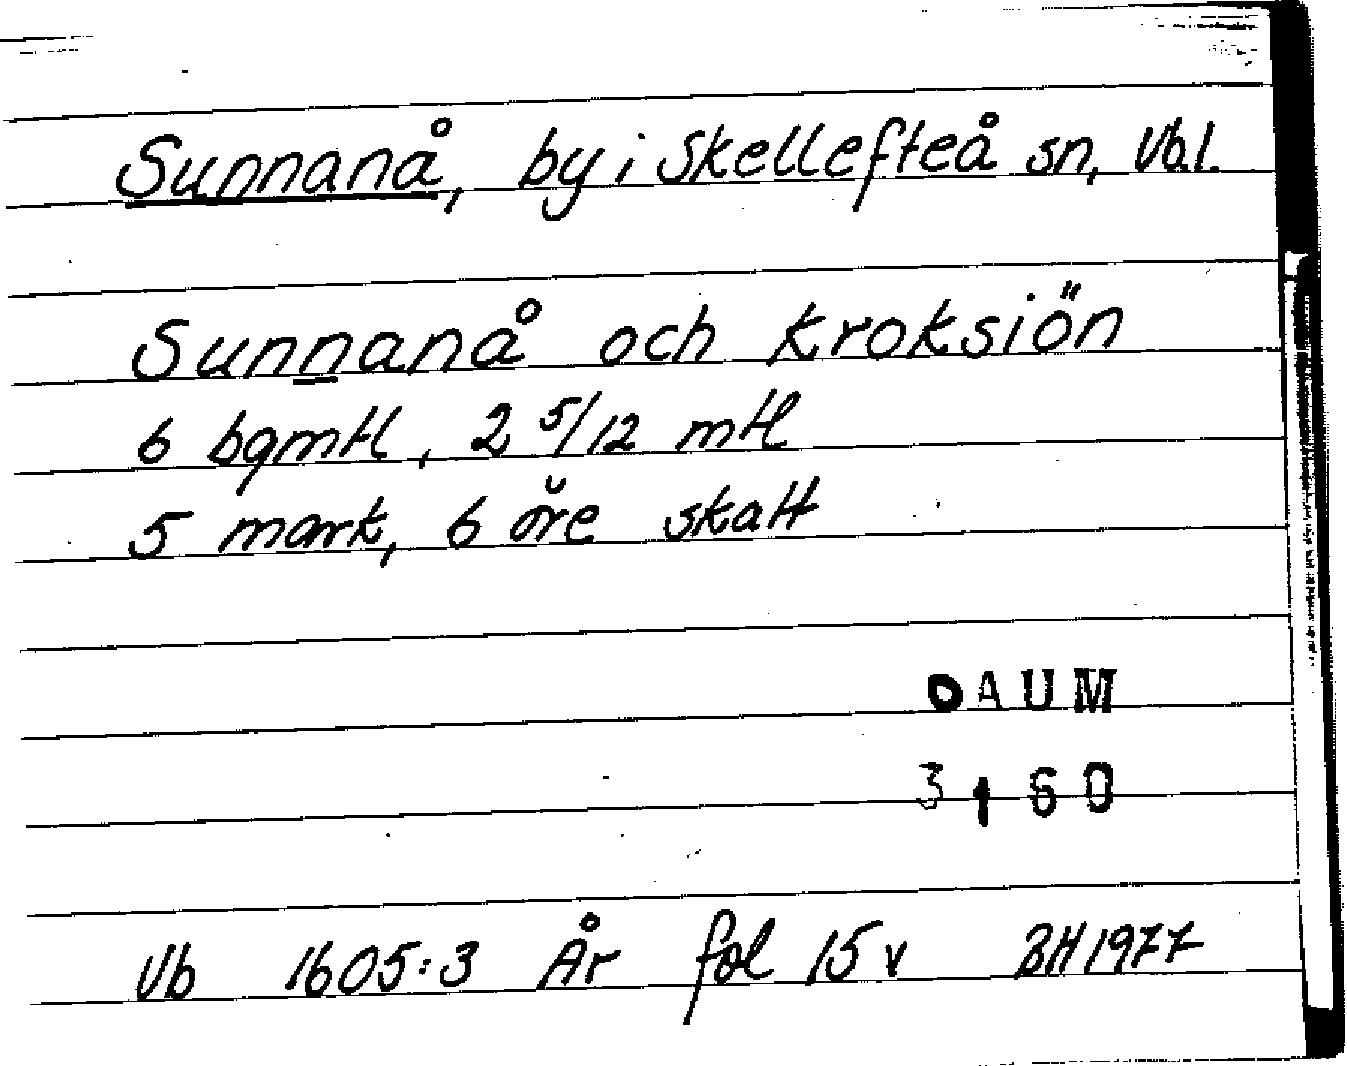 Sunnanå, by i Skellefteå sn, Vb.l.
Sunnanå och kroksiön
6 bgmtl, 2 5/12 mtl
5 mark, 6 öre skatt
OAUM
3160
Vb 1605:3 År fol 15 v BH 1977